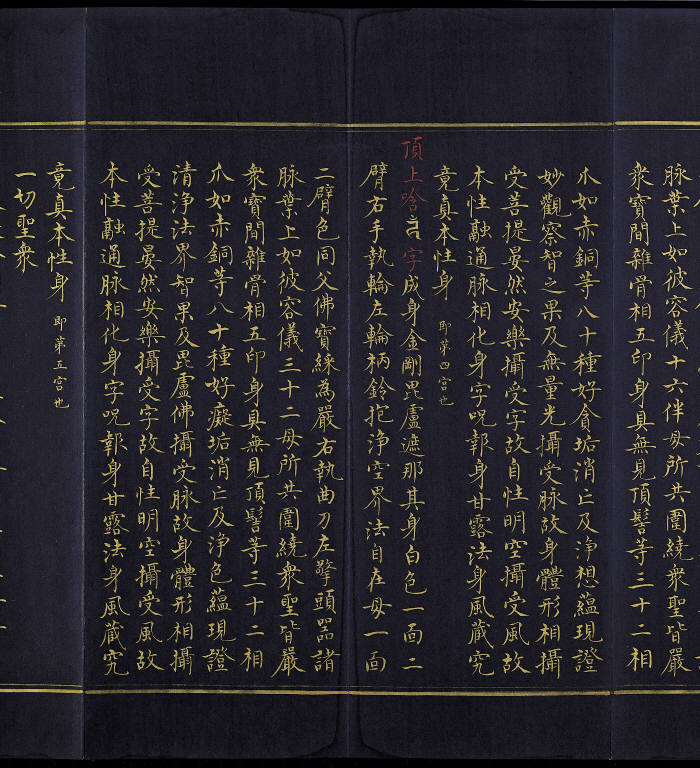 脉葉上如彼容儀十六伴母所共圍繞衆聖皆嚴
衆寶間雜骨相五印身具無見頂髻等三十二相
爪如赤銅等八十種好貪垢消亡及淨想蘊現證
妙觀察智之果及無量光攝受脉故身體形相攝
受菩提晏然安樂攝受字故自性明空攝受風故
本性融通脉相化身字呪報身甘露法身風藏究
竟真本性身 即第四宫也
頂上唅字成身金剛毘盧遮那其身白色一面二
臂右手執輪左輪柄鈴抱淨空界法自在母一面
二臂色同父佛寶綵為嚴右執曲刀左擎頭器諸
脉葉上如彼容儀三十二母所共圍繞衆聖皆嚴
衆寶間雜骨相五印身具無見頂髻等三十二相
爪如赤銅等八十種好癡垢消亡及淨色蘊現證
清淨法界智果及毘盧佛攝受脉故身體形相攝
受菩提晏然安樂攝受字故自性明空攝受風故
本性融通脉相化身字呪報身甘露法身風藏究
竟真本性身 即第五宫也
一切聖衆